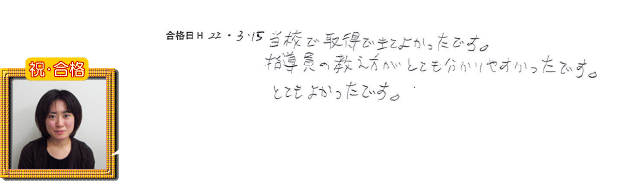 合格日 H 22・3・15
当校で取得できてよかったです。
指導員の教え方がとても分かりやすかったです。
とてもよかったです。
祝・合格